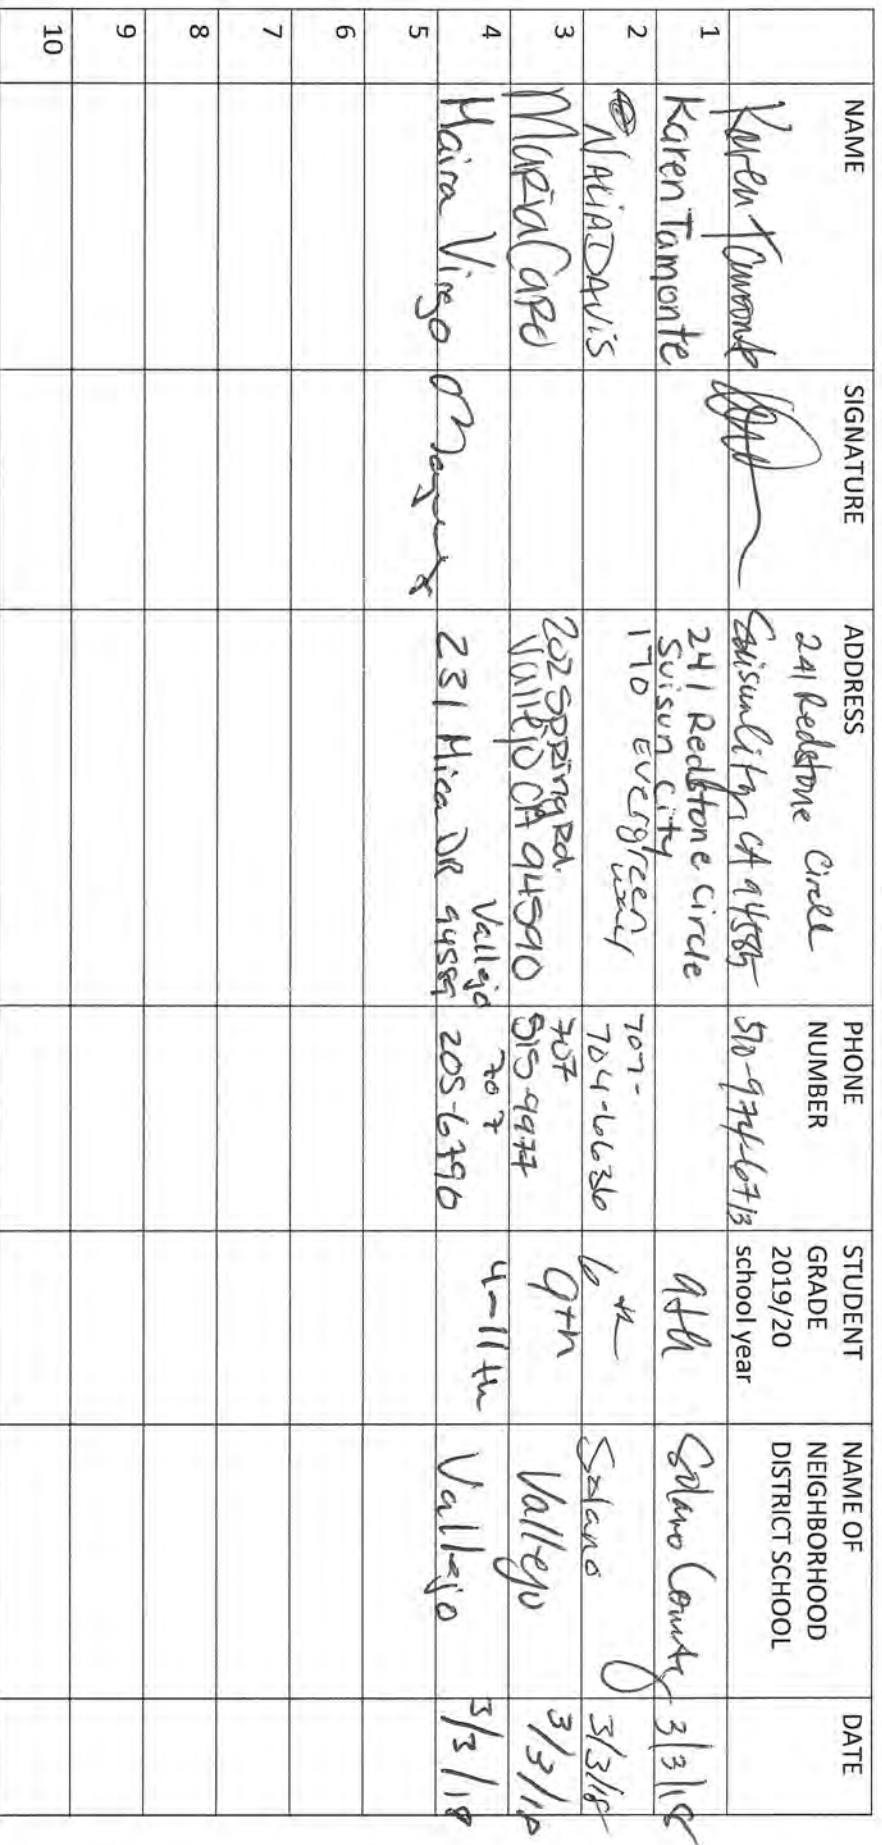 NAME SIGNATURE ADDRESS PHONE NUMBER STUDENT GRADE 2019/20 school year NAME OF NEIGHBORHOOD DISTRICT SCHOOL DATE
Karen 241 Redstone Circle
Suisun City, CA 94585 510-974-6713
1 Karen Tamonte 241 Redstone Circle
Suisun City 9th Solano County 3/3/18
2 DAVIS 170 Evergreen way 707-
704-6636 6th Solano 3/3/18
3 Maria Capo 202 Spring Rd.
Vallejo CA 94590 707
515-9977 9th Vallejo 3/3/18
4 Maira Virgo 231 Mica DR Vallejo
94589 707
205-6790 4-11th Vallejo 3/3/18
5
6
7
8
9
10